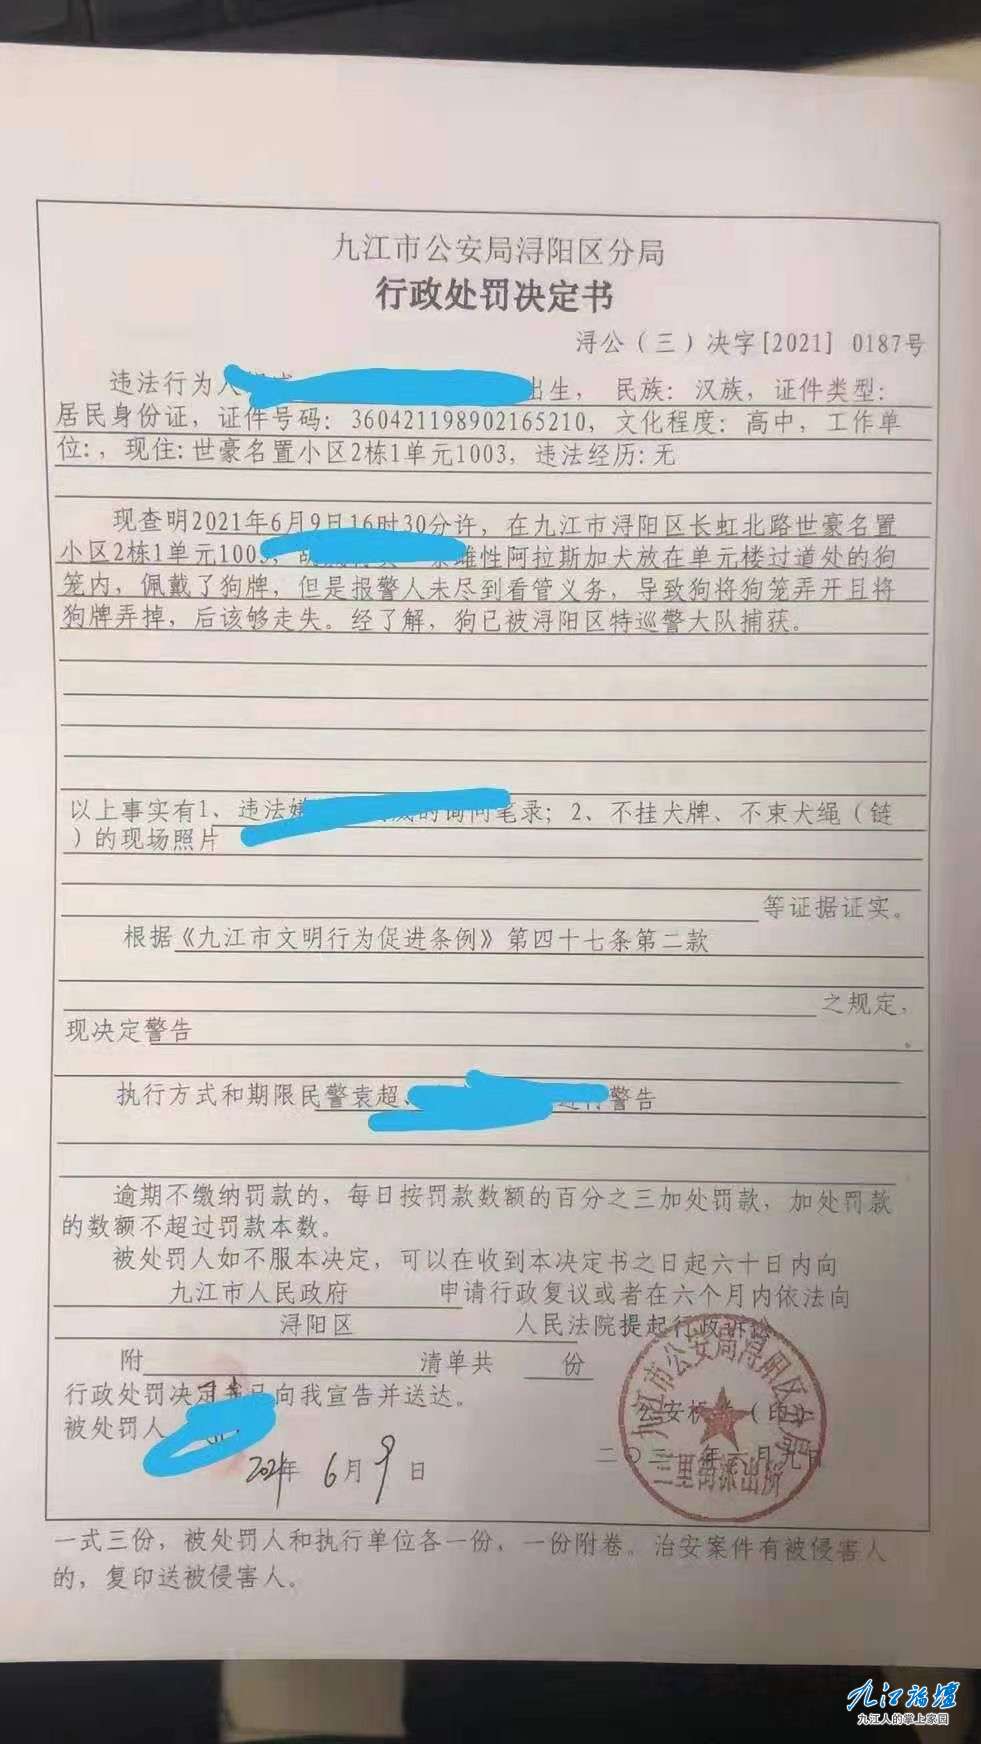 九江市公安局浔阳区分局
行政处罚决定书
浔公（三）决字[2021] 0187号
违法行为人 出生， 民族：汉族，证件类型：
居民身份证，证件号码：360421198902165210，文化程度：高中，工作单
位：，现住：世豪名置小区2栋1单元1003，违法经历：无
现查明2021年6月9日16时30分许，在九江市浔阳区长虹北路世豪名置
小区2栋1单元1003， 雄性阿拉斯加犬放在单元楼过道处的狗
笼内，佩戴了狗牌，但是报警人未尽到看管义务，导致狗将狗笼弄开且将
狗牌弄掉，后该够走失。经了解，狗已被浔阳区特巡警大队捕获。
以上事实有1、违法嫌 的询问笔录；2、不挂犬牌、不束犬绳（链
）的现场照片
等证据证实。
根据《九江市文明行为促进条例》第四十七条第二款
之规定，
现决定警告
。
执行方式和期限民警袁超、 进行警告
逾期不缴纳罚款的，每日按罚款数额的百分之三加处罚款，加处罚款
的数额不超过罚款本数。
被处罚人如不服本决定，可以在收到本决定书之日起六十日内向
九江市人民政府 申请行政复议或者在六个月内依法向
浔阳区 人民法院提起行政诉讼
附 清单共 份
行政处罚决定书已向我宣告并送达。
被处罚人
公安机关（印）
2021年 6月9日
二〇二一年六月九日
九江市公安局浔阳区分局
三里街派出所
一式三份，被处罚人和执行单位各一份，一份附卷。治安案件有被侵害人
的，复印送被侵害人。
九江论坛
九江人的掌上家园